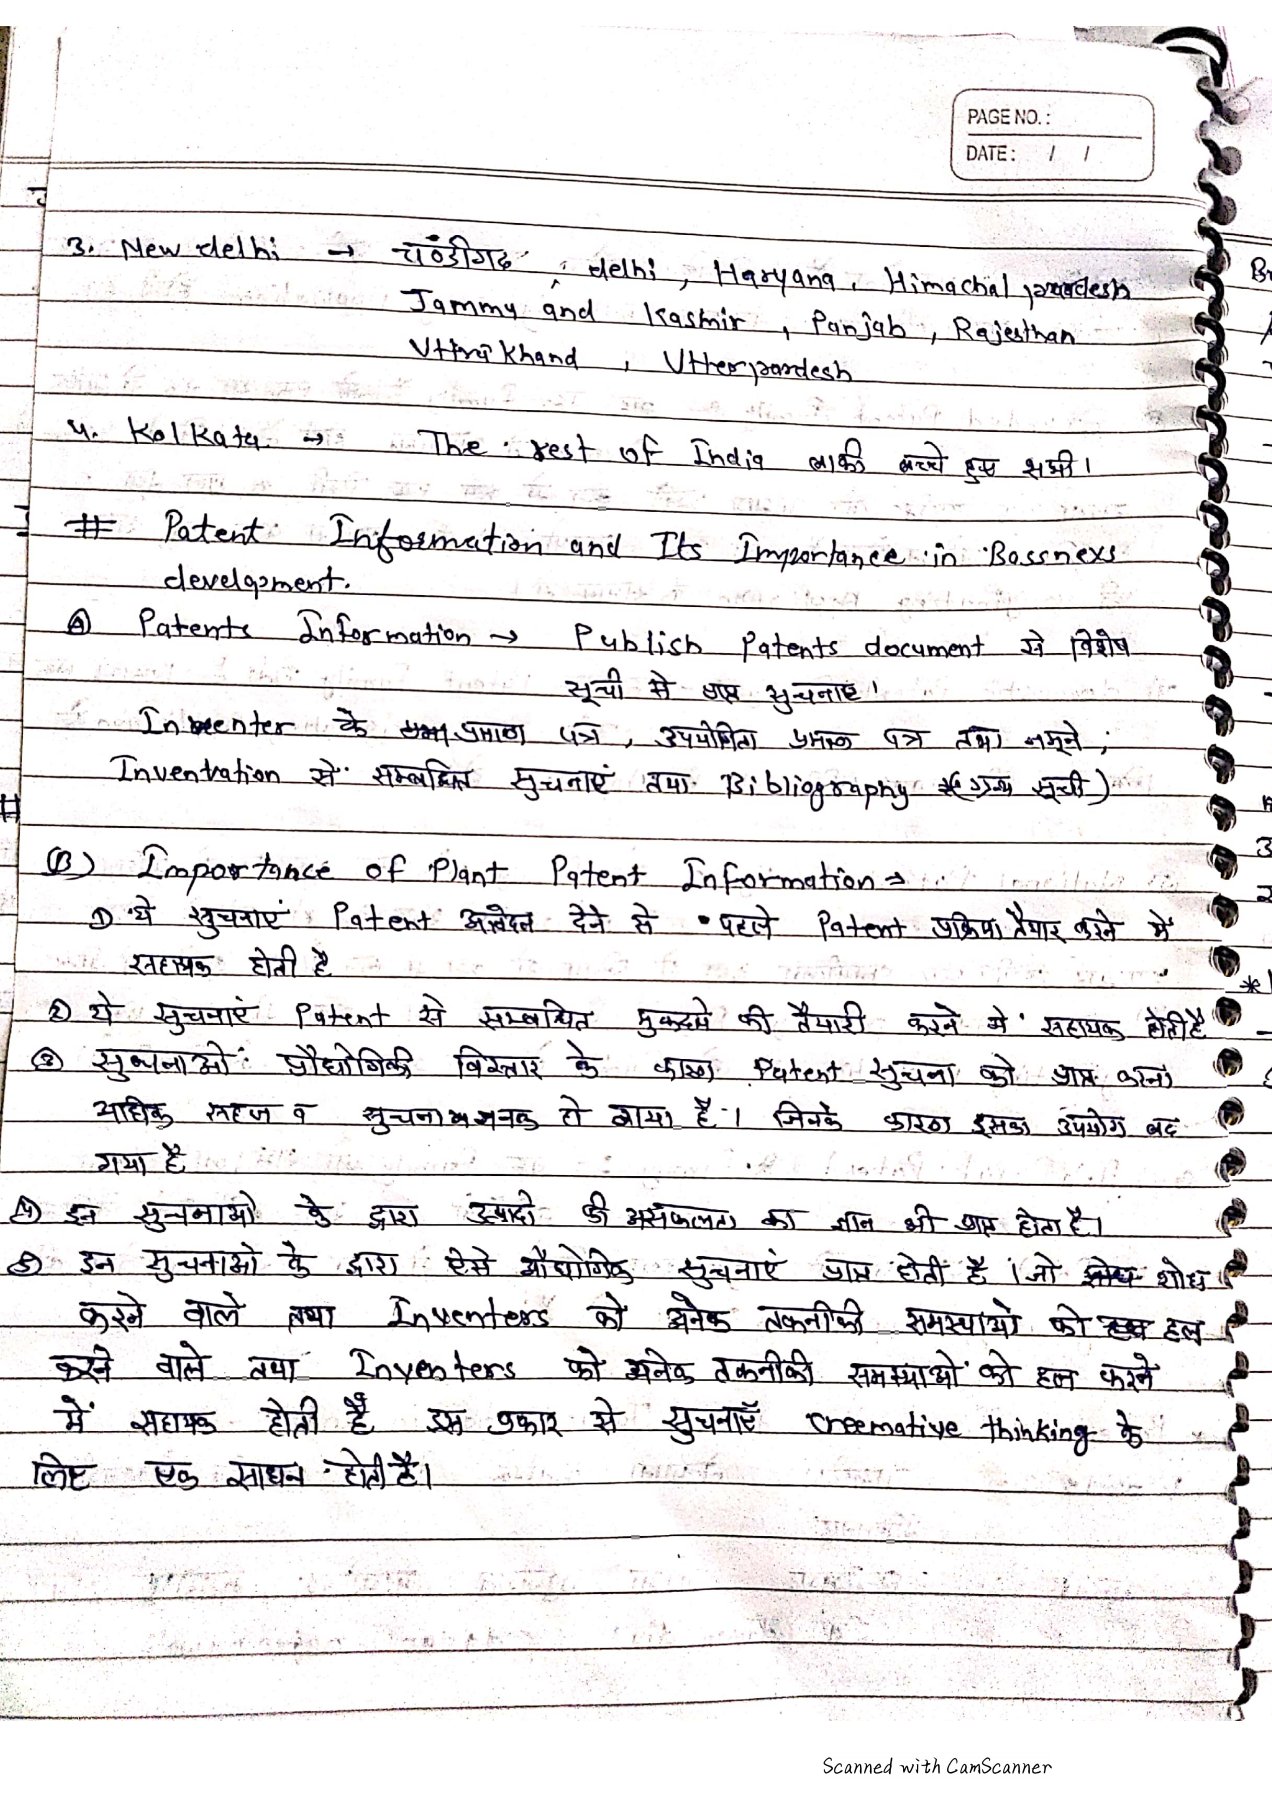 PAGE NO.:
DATE: / /
3. New delhi → चण्डीगढ़, delhi, Haryana, Himachal pradesh
Jammu and Kasmir, Panjab, Rajesthan
Uttrakhand, Utterpardesh
4. Kolkata → The rest of India बाकी बच्चे हुए सभी।
# Patent Information and Its Importance in Bossnexs
development.
(A) Patents Information → Publish Patents document से विशेष
सूची से प्राप्त सुचनाएं।
Inventer के प्रमाण पत्र, उपयोगिता प्रमाण पत्र तथा नमूने,
Inventration से सम्बन्धित सुचनाएं तथा Bibliography (ग्रन्थ सूची)
(B) Importance of Plant Patent Information →
1) ये सुचनाएं Patent आवेदन देने से पहले Patent प्रक्रिया तैयार करने में
सहायक होती है
2) ये सुचनाएं Patent से सम्बन्धित मुकदमे की तैयारी करने में सहायक होती है
(3) सुचनाओं प्रौद्योगिकी विस्तार के कारण Patent सुचना को प्राप्त करना
अधिक सहज व हो गया है। जिनके कारण इसका उपयोग बढ़
गया है
(4) इन सुचनाओ के द्वारा उत्पादो की असफलता का ज्ञान भी प्राप्त होता है।
(5) इन सुचनाओ के द्वारा ऐसे औद्योगिक सुचनाएं प्राप्त होती है। जो शोध
करने वाले तथा Inventers को अनेक तकनीकी समस्याओ को हल
करने वाले तथा Inventers को अनेक तकनीकी समस्याओं को हल करने
में सहायक होती है इस प्रकार से सुचनाएँ creemative thinking के
लिए एक साधन होती है।
Scanned with CamScanner